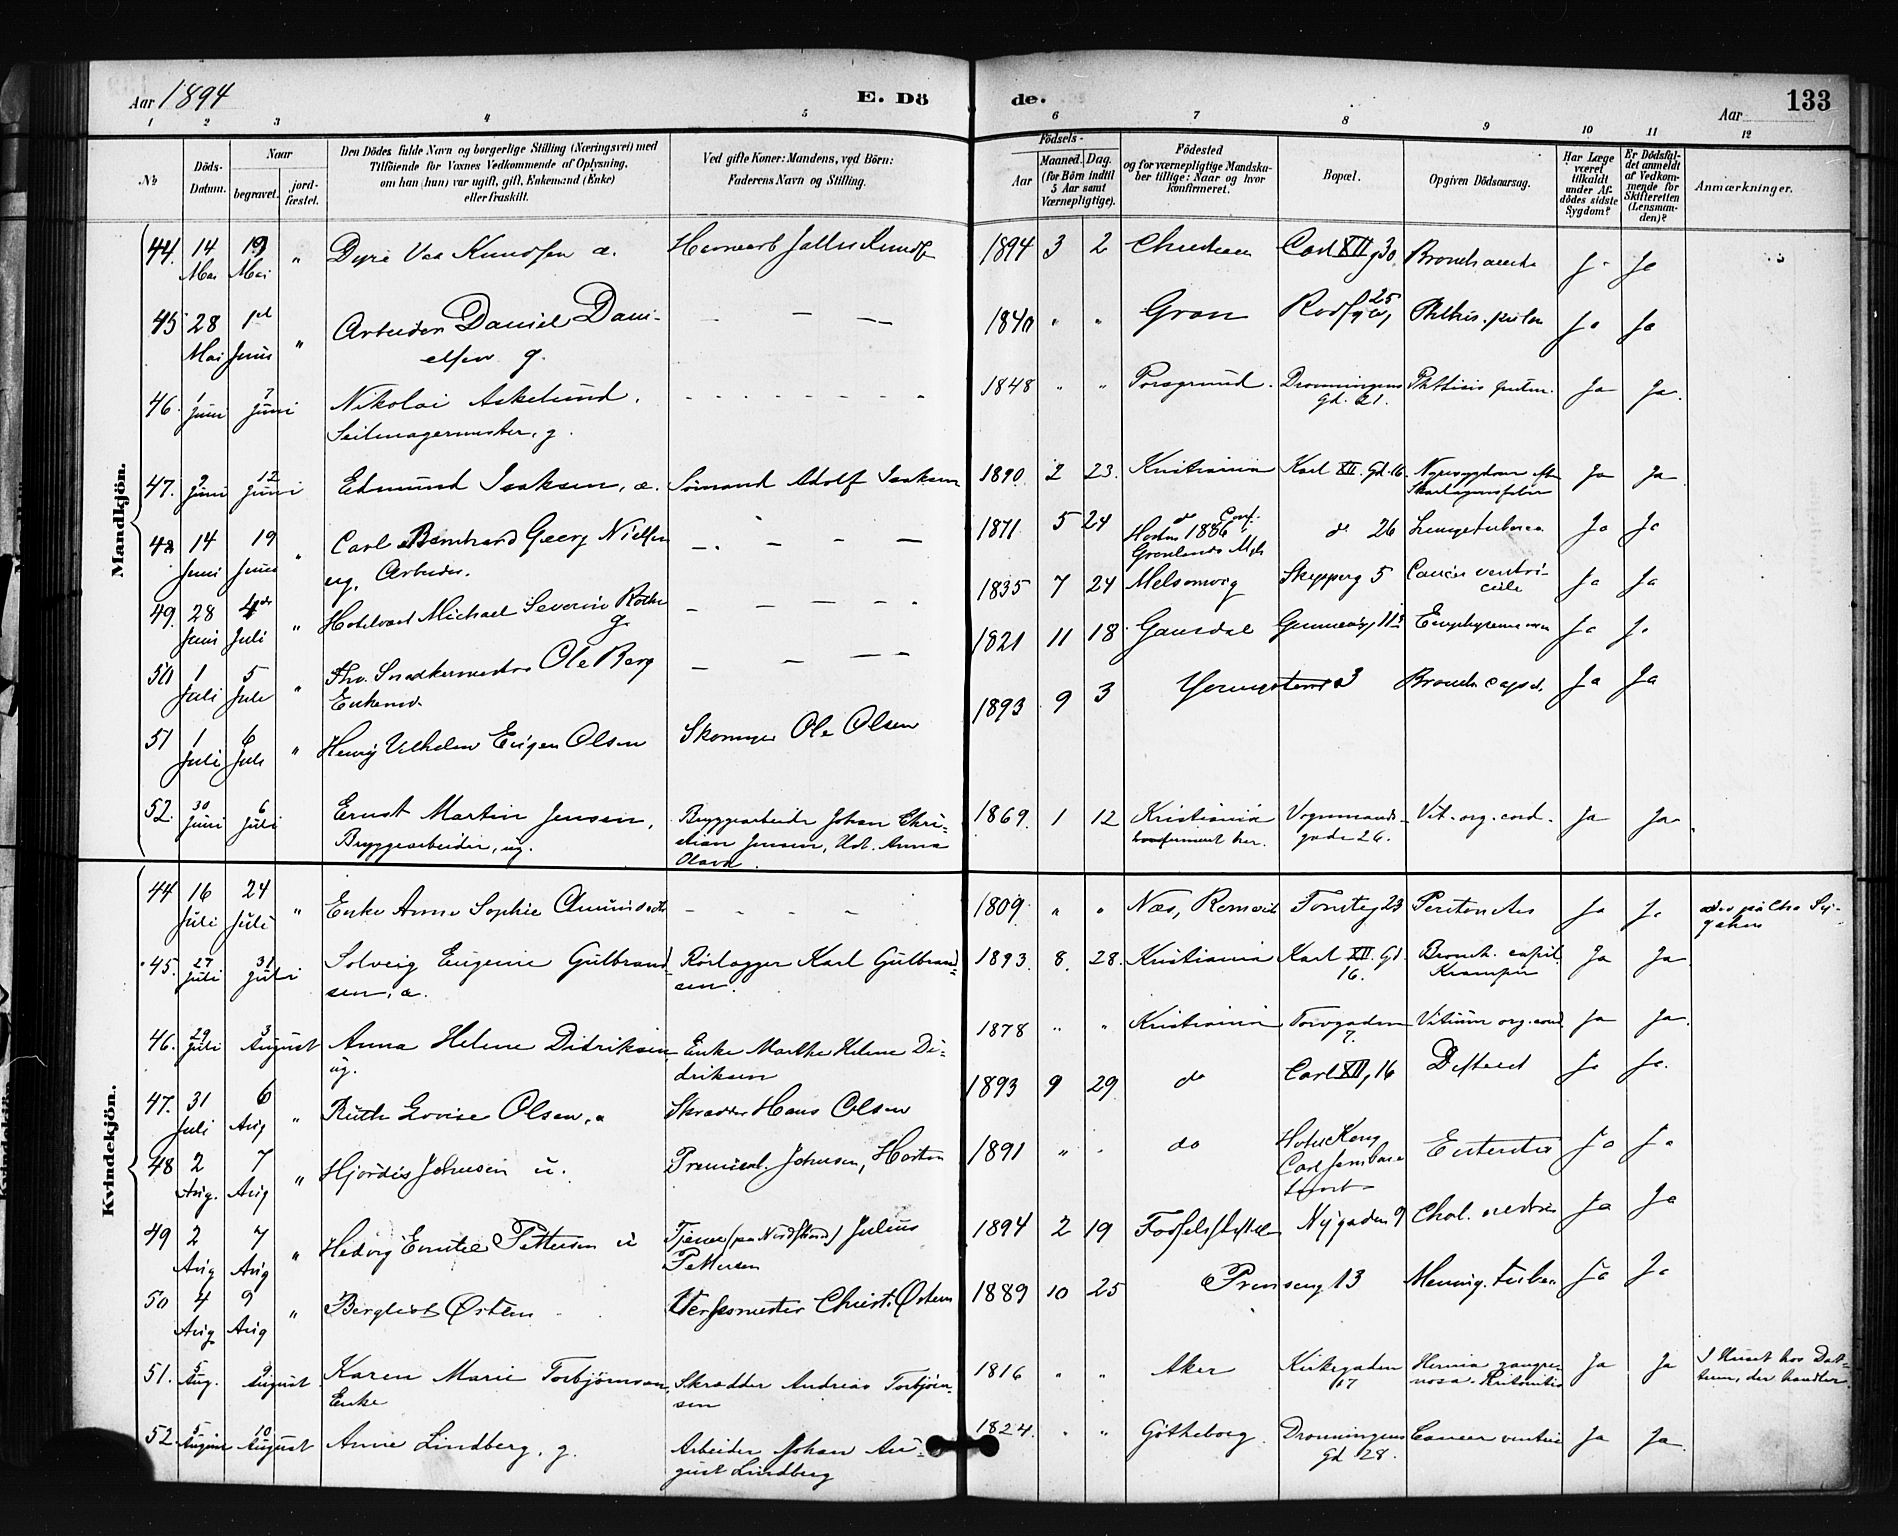 Aar 1894 E. Dö de. Aar 133
1 2 3 4 5 6 7 8 9 10 11 12
No
Döds-Datum.
Naar
begravet.
jord-fæstet.
Den Dödes fulde Navn og borgerlige Stilling (Næringsvei) med
Tilföiende for Voxnes Vedkommende af Oplysning,
om han (hun) var ugift, gift, Enkemand (Enke)
eller fraskilt.
Ved gifte Koner: Mandens, ved Börn:
Faderens Navn og Stilling.
Födsels-
Aar
Maaned. Dag.
(for Börn indtil
5 Aar samt
Værnepligtige).
Födested
og for værnepligtige Mandska-
ber tillige: Naar og hvor
konfirmeret.
Bopæl.
Opgiven Dödsaarsag.
Har Læge
været
tilkaldt
under Af-
dödes sidste
Sygdom?
Er Dödsfal-
det anmeldt
af Vedkom-
mende for
Skifteretten
(Lensman-
den)?
Anmærkninger.
Mandkjön.
44. 14 Mai 19 Mai " Dyre Vaa Knudsen æ. 1894 3 2 Carl XII g 30 Ja
45 28 Mai 1st Juni " Arbeider Daniel Dani-
elsen g. — — — 1840 " " Gran 25 Ja Ja
46. 1 Juni 7 Juni Nikolai Askelund,
Seilmagermester, g. 1848 " " Porsgrund. Dronningens
gd. 21. Phthisis pulm. Ja Ja.
47. 7 Juni 12 Juni Edmund Isaksen, æ. Sömand Adolf Isaksen 1890. 2 23. Kristiania Karl XII. Gd. 16. Nyresygdom efter
Skarlagensfeber Ja Ja.
48 14 Juni 19 Juni " Carl Bernhard Georg Nielsen
ug. Arbeider. — — — — 1871 5 24 Conf.
Horten 1886
Grönlands do 26 Ja Ja
49. 28 Juni 4de Juli " Michael Severin
g. — — — 1835 7 24 Melsomvig Skipperg 5 Cancer ventri-
culi Ja Ja
50 1 Juli 5 Juli " Fhv. Snedkermester Ole Berg
Enkemd. — — — 1821 11 18 Gausdal Ja Ja
51 1 Juli 6 Juli " Henrÿ Vilhelm Eugen Olsen Skomager Ole Olsen 1893 9 3 Bronch. Ja Ja
52. 30 Juni 6 Juli Ernst Martin Jensen,
Bryggearbeider, ug. Bryggearbeider Johan Chri-
stian Jensen, Anna
Olava. 1869. 1 12 Kristiania
konfirmert her. Vognmands-
gade 26. Vit. org. cord. Ja Ja.
Kvindekjön.
44 16 Juli 24 Juli " Enke Anne Sophie — - - - 1809. " " Næs, Romerik 23 Ja Ja
45. 27 Juli 31 Juli Solveig Eugenie Gulbrand-
sen, æ. Rörlægger Karl Gulbrand-
sen. 1893. 8. 28. Kristiania Karl XII. Gd.
16. Bronch. capil.
Kramper Ja Ja
46. 29 Juli 3 August Anna Helene Didriksen,
ug. Enke Marthe Helene Di-
driksen 1878 " " Kristiania Torvgaden
7. Vitium org. cord Ja Ja.
47. 31 Juli 6 Aug " Ruth Lovise Olsen, æ Skrædder Hans Olsen 1893 9 29 do Carl XII, 16 Difterit Ja Ja.
48 2 Aug. 7 Aug " Hjördis Johnsen u. Johnsen, Horten 1891 " " do Hotel Kong
Carl Jernbane-
torvet Enteritis Ja Ja
49 2 Aug 7 Aug " Hedvig Emilie Pettersen u Julius
Pettersen 1894 2 19 Födselsstiftelsen Nygaden 9 Chol. Ja Ja
50 4 Aug 9 Aug " Bergliot Östern Værksmester Christ. Östern 1889 10 25 Prinseng 13 Mening. tuber. Ja Ja
51. 5 Aug. 9 August Karen Marie Torbjörnsen,
Enke Skrædder Andreas Torbjörn-
sen 1816 " " Aker Kirkegaden
17 Hernia gangre-
nosa. Peritonitis Ja Ja I Huset hos Dat-
teren, der handler.
52. 5 August 10 August Anne Lindberg, g. Arbeider Johan Au-
gust Lindberg 1824. " " Götheborg. Dronningens
Gd 28. Cancer ventric Ja Ja.